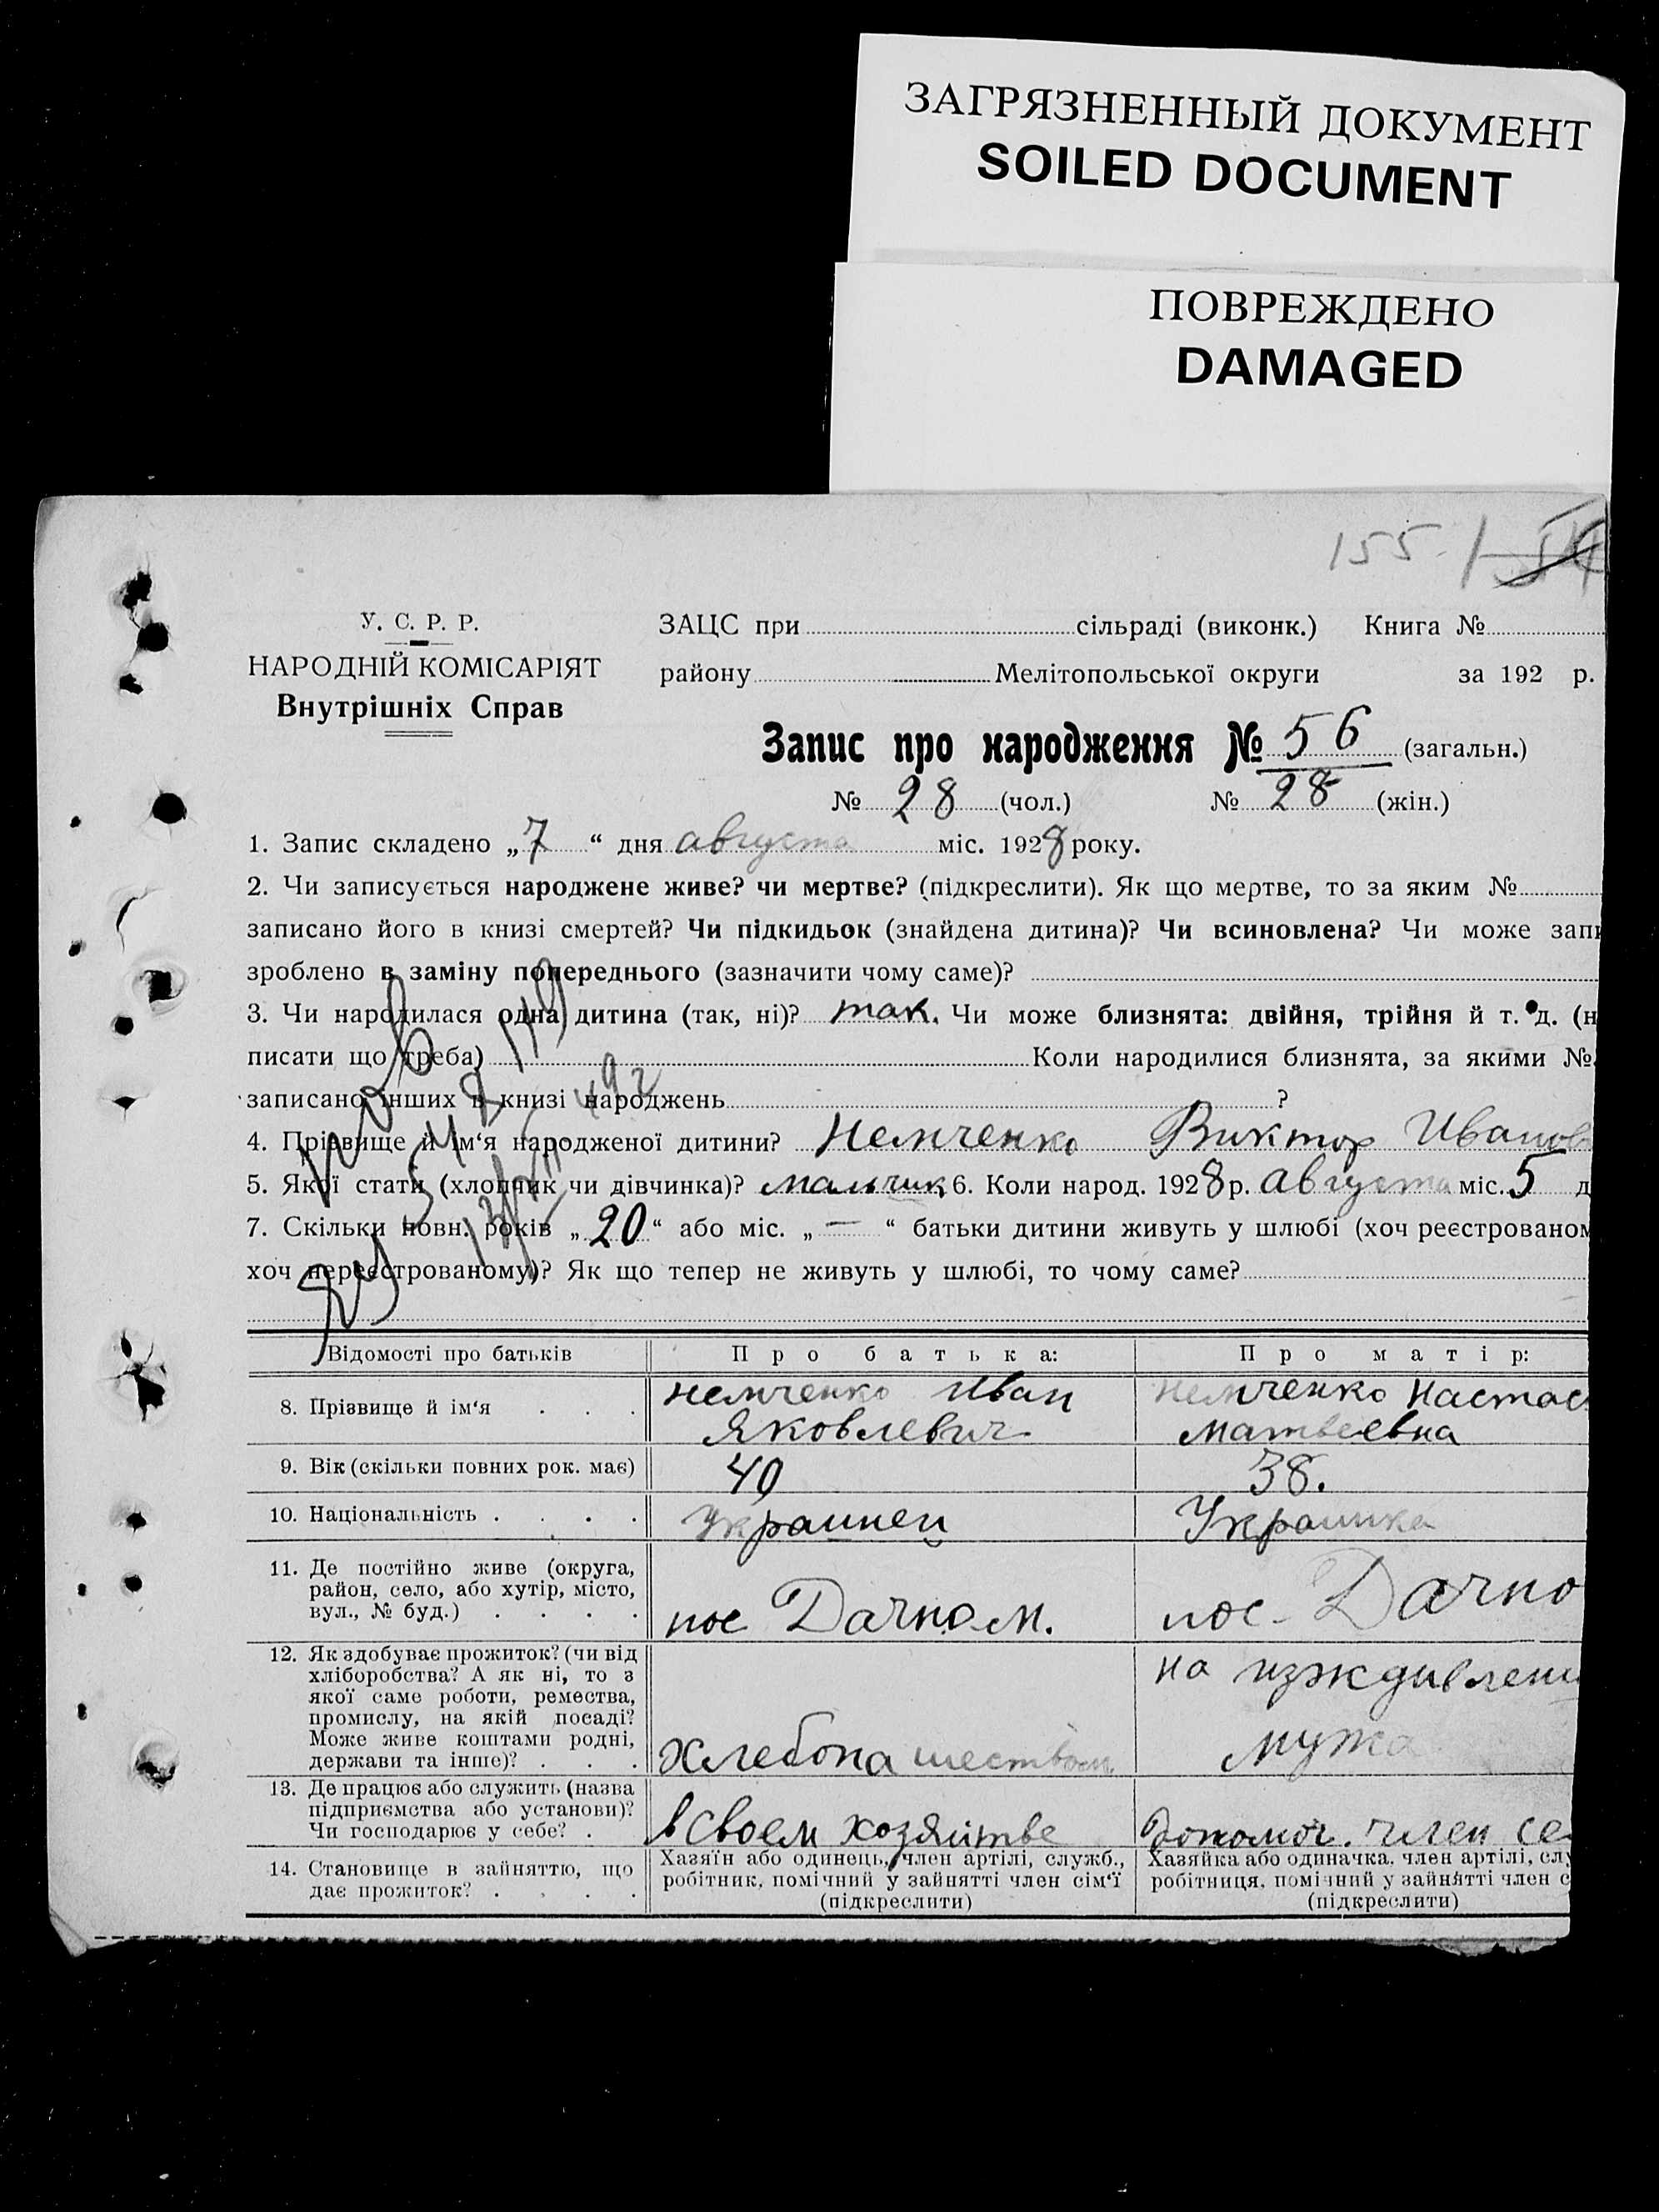 ЗАГРЯЗНЕННЫЙ ДОКУМЕНТ
SOILED DOCUMENT
ПОВРЕЖДЕНО
DAMAGED
155.
У. С. Р. Р.
НАРОДНІЙ КОМІСАРІЯТ
Внутрішніх Справ
ЗАЦС при сільраді (виконк.) Книга №
району Мелітопольської округи за 192 р.
Запис про народження № 56 (загальн.)
№ 28 (чол.) № 28 (жін.)
1. Запис складено „7“ дня августа міс. 1928 року.
2. Чи записується народжене живе? чи мертве? (підкреслити). Як що мертве, то за яким №
записано його в книзі смертей? Чи підкидьок (знайдена дитина)? Чи всиновлена? Чи може запи
зроблено в заміну попереднього (зазначити чому саме)?
3. Чи народилася одна дитина (так, ні)? так. Чи може близнята: двійня, трійня й т. д. (н
писати що треба) Коли народилися близнята, за якими №
записано інших в книзі народжень ?
4. Прізвище й ім‘я народженої дитини? Немченко Виктор Иванов
5. Якої статі (хлопчик чи дівчинка)? мальчик 6. Коли народ. 1928 р. августа міс. 5 д
7. Скільки повн. років „20“ або міс. „—“ батьки дитини живуть у шлюбі (хоч реєстрованом
хоч нереєстрованому)? Як що тепер не живуть у шлюбі, то чому саме?
Відомості про батьків Про батька: Про матір:
8. Прізвище й ім‘я . . . Немченко Иван Яковлевич Немченко Настас Матвеевна
9. Вік (скільки повних рок. має) 40 38.
10. Національність . . . . Украинец Украинка
11. Де постійно живе (округа,
район, село, або хутір, місто,
вул., № буд.) . . . .
пос Дачном. пос- Дачно
12. Як здобуває прожиток? (чи від
хліборобства? А як ні, то з
якої саме роботи, ремества,
промислу, на якій посаді?
Може живе коштами родні,
держави та інше)? . . .
Хлебопашеством
на изждивлени
мужа
13. Де працює або служить (назва
підприємства або установи)?
Чи господарює у себе? .
в своем хозяйстве допомог. член се
14. Становище в зайняттю, що
дає прожиток? . . . .
Хазяїн або одинець, член артілі, служб.,
робітник, помічний у зайнятті член сім‘ї
(підкреслити)
Хазяйка або одиначка, член артілі, слу
робітниця, помічний у зайнятті член с
(підкреслити)